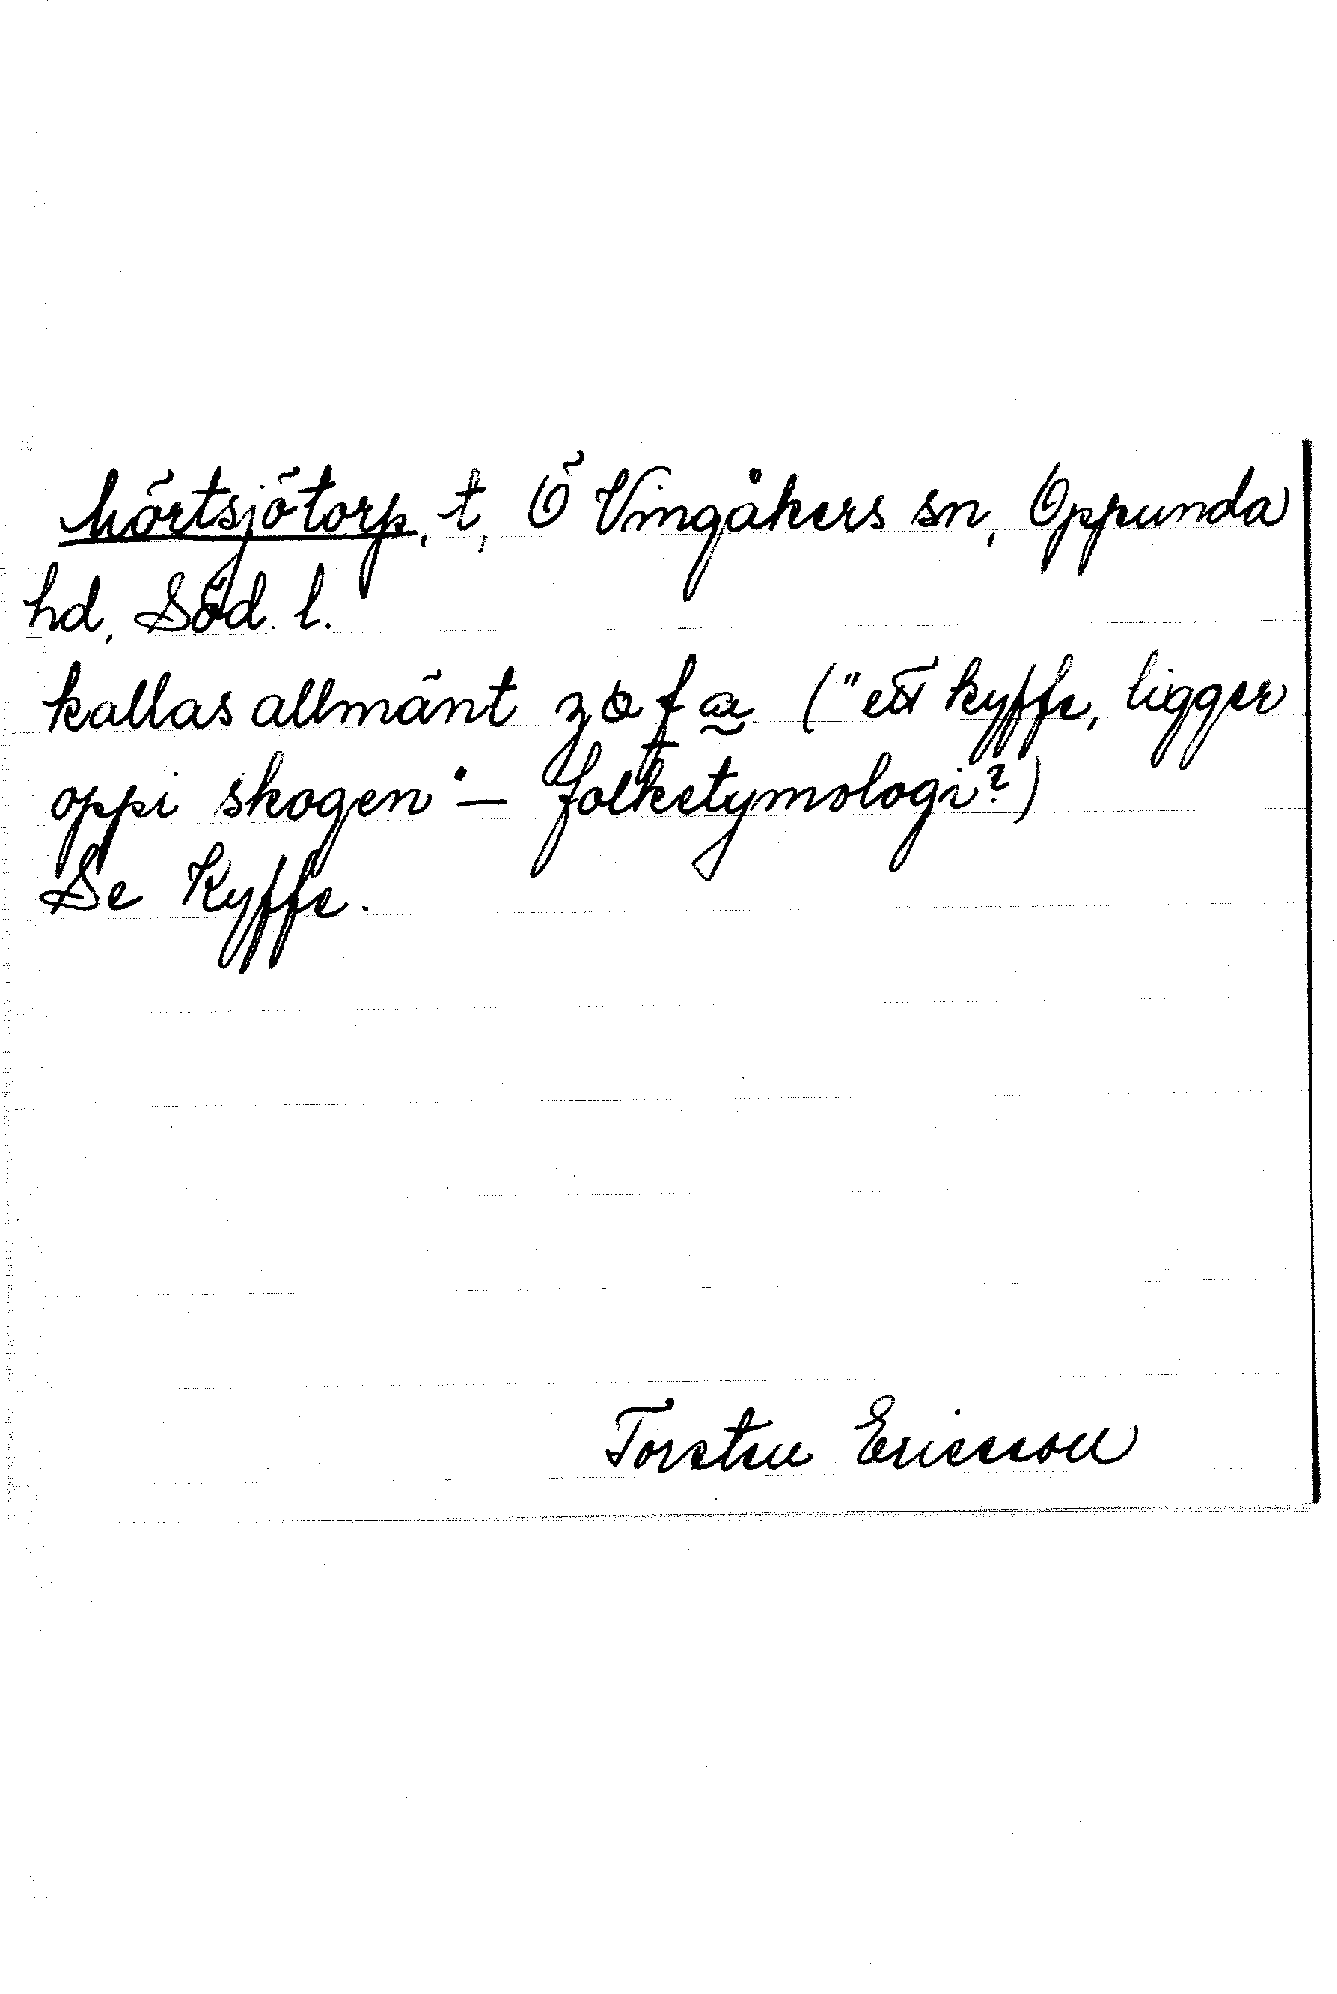 Mörtsjötorp, t, Ö Vingåkers sn, Oppunda
hd, Söd. l.
kallas allmänt ("ett kyffe, ligger
oppi skogen" – folketymologi?)
Se Kyffe.
Torsten Ericsson